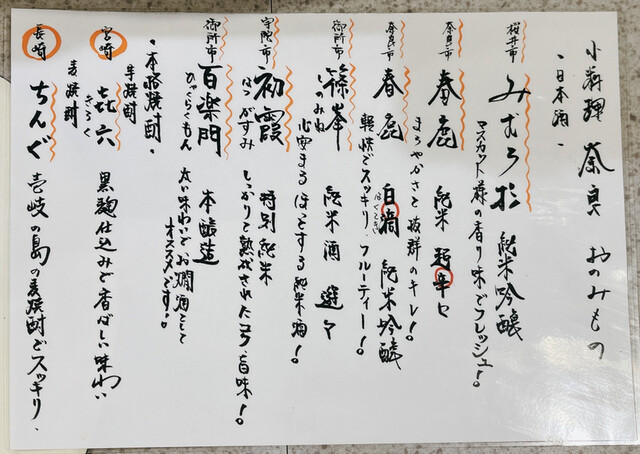 小料理 奈良 おのみもの
・日本酒・
桜井市 みむろ杉 純米吟醸
マスカット様の香り味でフレッシュ!
奈良市 春鹿 純米 超辛口
まろやかさと抜群のキレ!
奈良市 春鹿 白滴 純米吟醸
はくてき
軽快でスッキリフルーティー!
御所市 篠峯 純米酒 遊々
しのみね
心安まるほっとする純米酒!
宇陀市 初霞 特別純米
はつがすみ
しっかりと熟成されたコク、旨味!
御所市 百楽門 本醸造
ひゃくらくもん
太い味わいでお燗酒として
オススメです!
・本格焼酎・
芋焼酎
宮崎 㐂六 黒麹仕込みで香ばしい味わい
きろく
麦焼酎
長崎 ちんぐ 壱岐の島の麦焼酎でスッキリ、